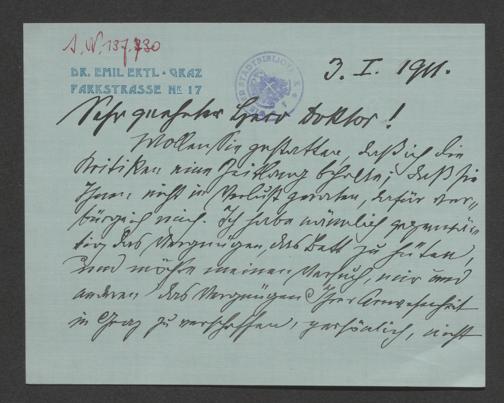 J. N. 137.730
DR. EMIL ERTL · GRAZ
PARKSTRASSE Nº 17
3. I. 1911.
Sehr geehrter Herr Doktor!
Wollen Sie gestatten, daß ich die
Kritiken eine Zeitlang behalte; daß sie
Ihnen nicht in Verlust geraten, dafür ver-
bürge ich mich. Ich habe nämlich gegenwär-
tig das Vergnügen, das Bett zu hüten,
und möchte meinen Versuch, mir und
anderen das Vergnügen Ihrer Anwesenheit
in Graz zu verschaffen, persönlich, nicht